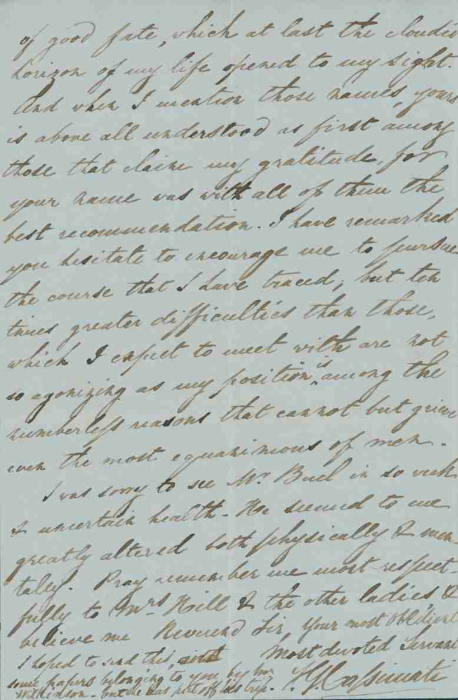 of good fate, which at last the clouded
horizon of my life opened to my sight.
And when I mention those names, yours
is above all understood as first among
those that claim my gratitude, for
your name was with all of them the
best recommendation. I have remarked
you hesitate to encourage me to pursue
the course that I have traced, but ten
times greater difficulties than those,
which I expect to meet with are not
so agonizing as my position is among the
numberless reasons that cannot but grieve
even the most equanimous of men.
I was sorry to see Mr. Buel in so weak
& uncertain health - He seemed to me
greatly altered both physically & men
tally. Pray remember me most respect
fully to Mrs Hill & the other ladies &
believe me Reverend Sir, your most obedient
Most devoted Servant
I hoped to send this, and
some papers belonging to you, by Mr
but he has put off his trip.